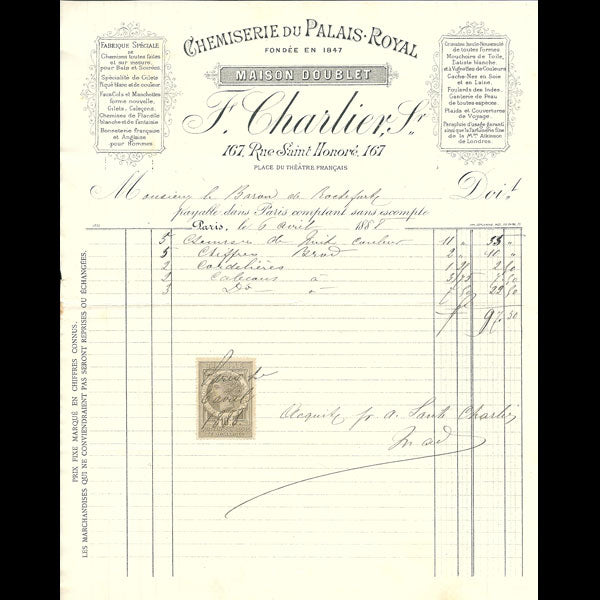 CHEMISERIE DU PALAIS-ROYAL
FONDÉE EN 1847
MAISON DOUBLET
F. Charlier, Sr
167, Rue Saint Honoré, 167
PLACE DU THÉÂTRE FRANÇAIS
FABRIQUE SPÉCIALE
DE
Chemises toutes faites
et sur mesure,
pour Bals et Soirées.
Spécialité de Gilets
Piqué blanc et de couleur.
Faux-Cols et Manchettes
forme nouvelle,
Gilets, Caleçons,
Chemises de Flanelle
blanche et de fantaisie.
Bonneterie française
et Anglaise
pour Hommes.
Cravates haute Nouveauté
de toutes formes
Mouchoirs de Toile,
Batiste blanche
et à Vignettes de Couleurs
Cache-Nez en Soie
et en Laine,
Foulards des Indes,
Ganterie de Peau
de toutes espèces.
Plaids et Couvertures
de Voyage.
Parapluie d'usage garanti
ainsi que la Parfumerie fine
de la Mon Atkinson
de Londres.
Monsieur le Baron de Rochefort Doit
payable dans Paris comptant sans escompte
Paris, le 6 avril 1888
5 Chemises de Nuit Couleur 11 " 55 "
5 Chiffres Brod 2 " 10 "
2 Cordelières
2 Caleçons à
3 Do 7 50 22 50
97 50
Acquit pr a. Charlier
PRIX FIXE MARQUÉ EN CHIFFRES CONNUS.
LES MARCHANDISES QUI NE CONVIENDRAIENT PAS SERONT REPRISES OU ÉCHANGÉES.